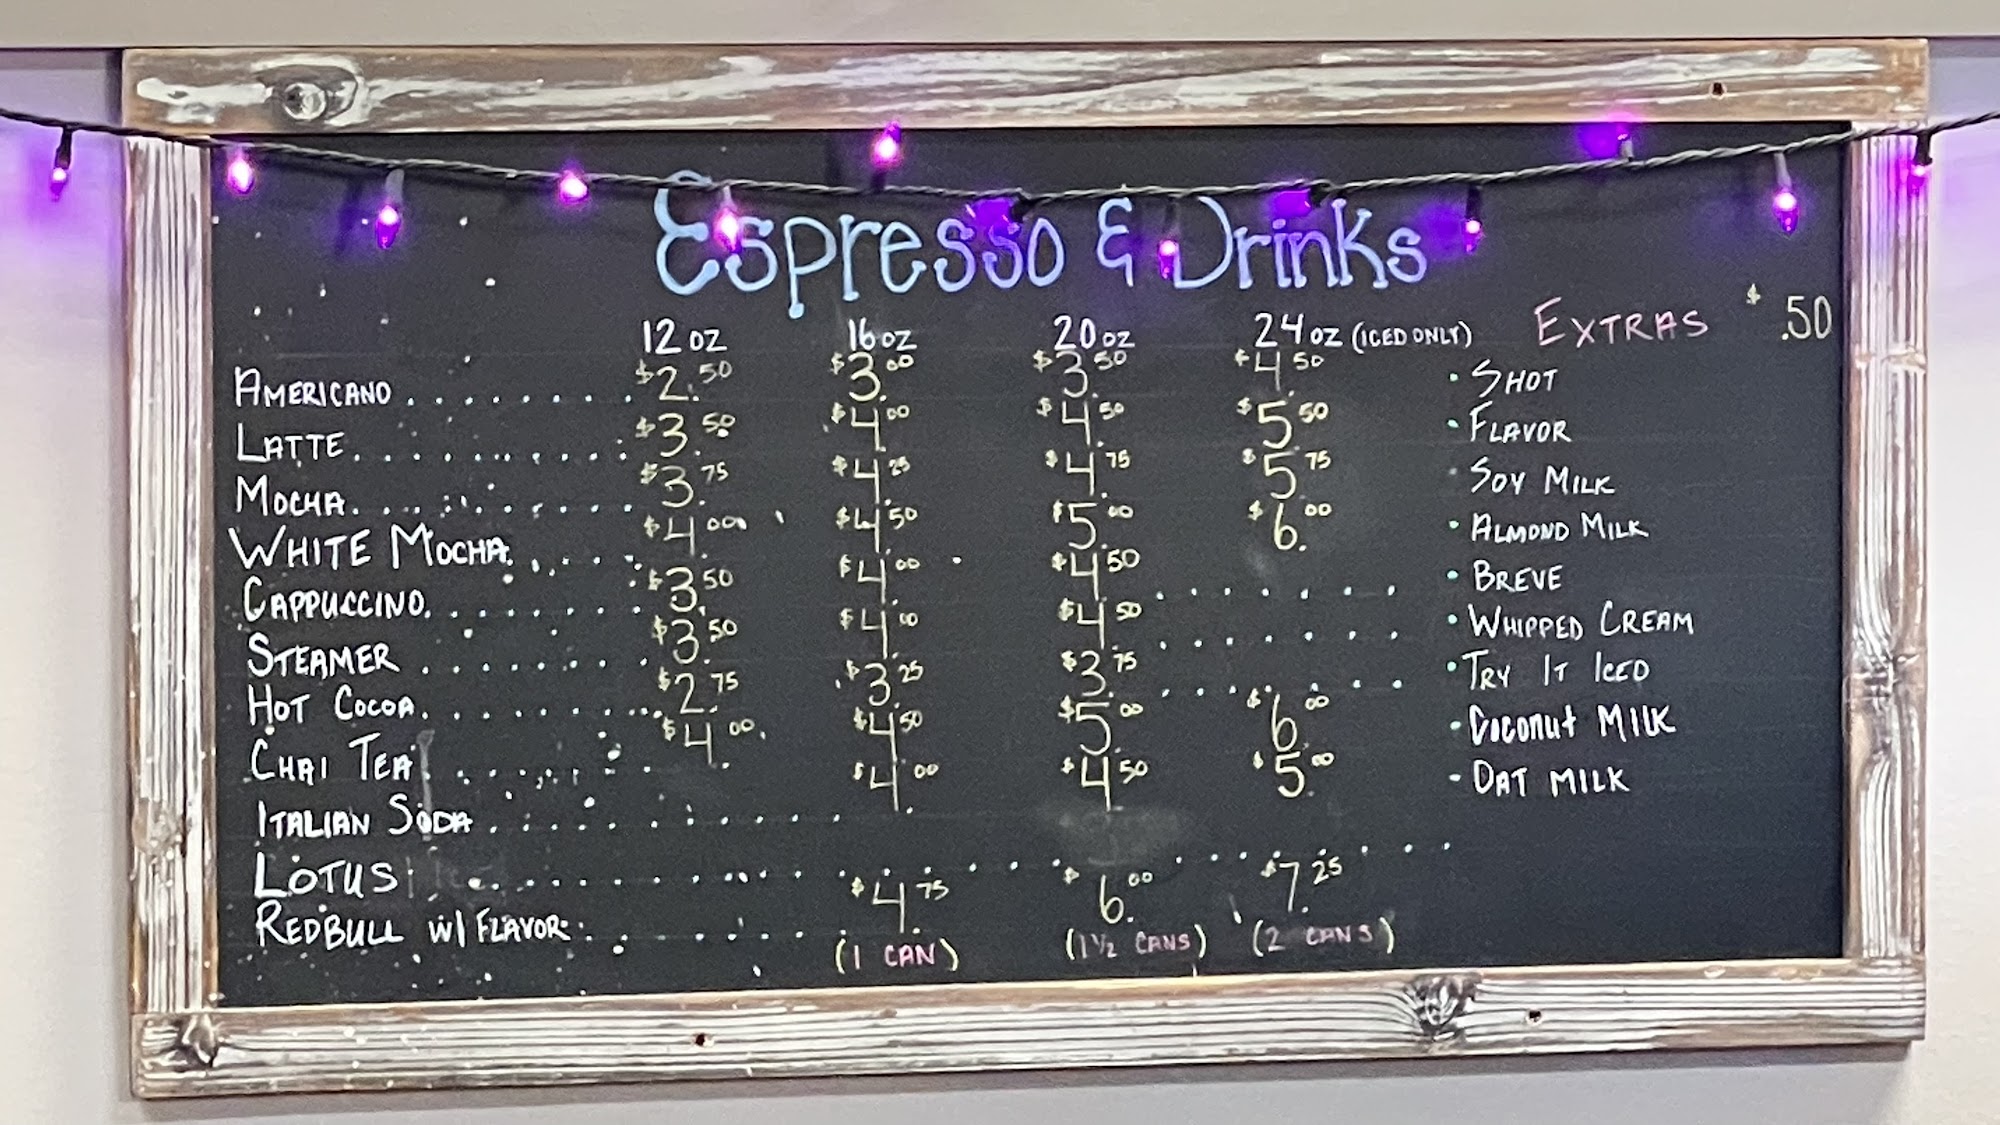 Espresso & Drinks
12 oz 16 oz 20 oz 24 oz (ICED ONLY) EXTRAS $ .50
AMERICANO ........ $2.50 $3.00 $3.50 $4.50 · SHOT
LATTE .......... $3.50 $4.00 $4.50 $5.50 · FLAVOR
MOCHA .......... $3.75 $4.25 $4.75 $5.75 · SOY MILK
WHITE MOCHA ..... $4.00 $4.50 $5.00 $6.00 · ALMOND MILK
CAPPUCCINO ........ $3.50 $4.00 $4.50 ....... · BREVE
STEAMER ........ $3.50 $4.00 $4.50 ....... · WHIPPED CREAM
HOT COCOA ......... $2.75 $3.25 $3.75 ....... · TRY IT ICED
CHAI TEA ....... $4.00 $4.50 $5.00 $6.00 · COCONUT MILK
ITALIAN SODA ......... $4.00 $4.50 $5.00 - OAT MILK
LOTUS ....................
REDBULL W/ FLAVOR ....... $4.75 $6.00 $7.25
(1 CAN) (1 1/2 CANS) (2 CANS)